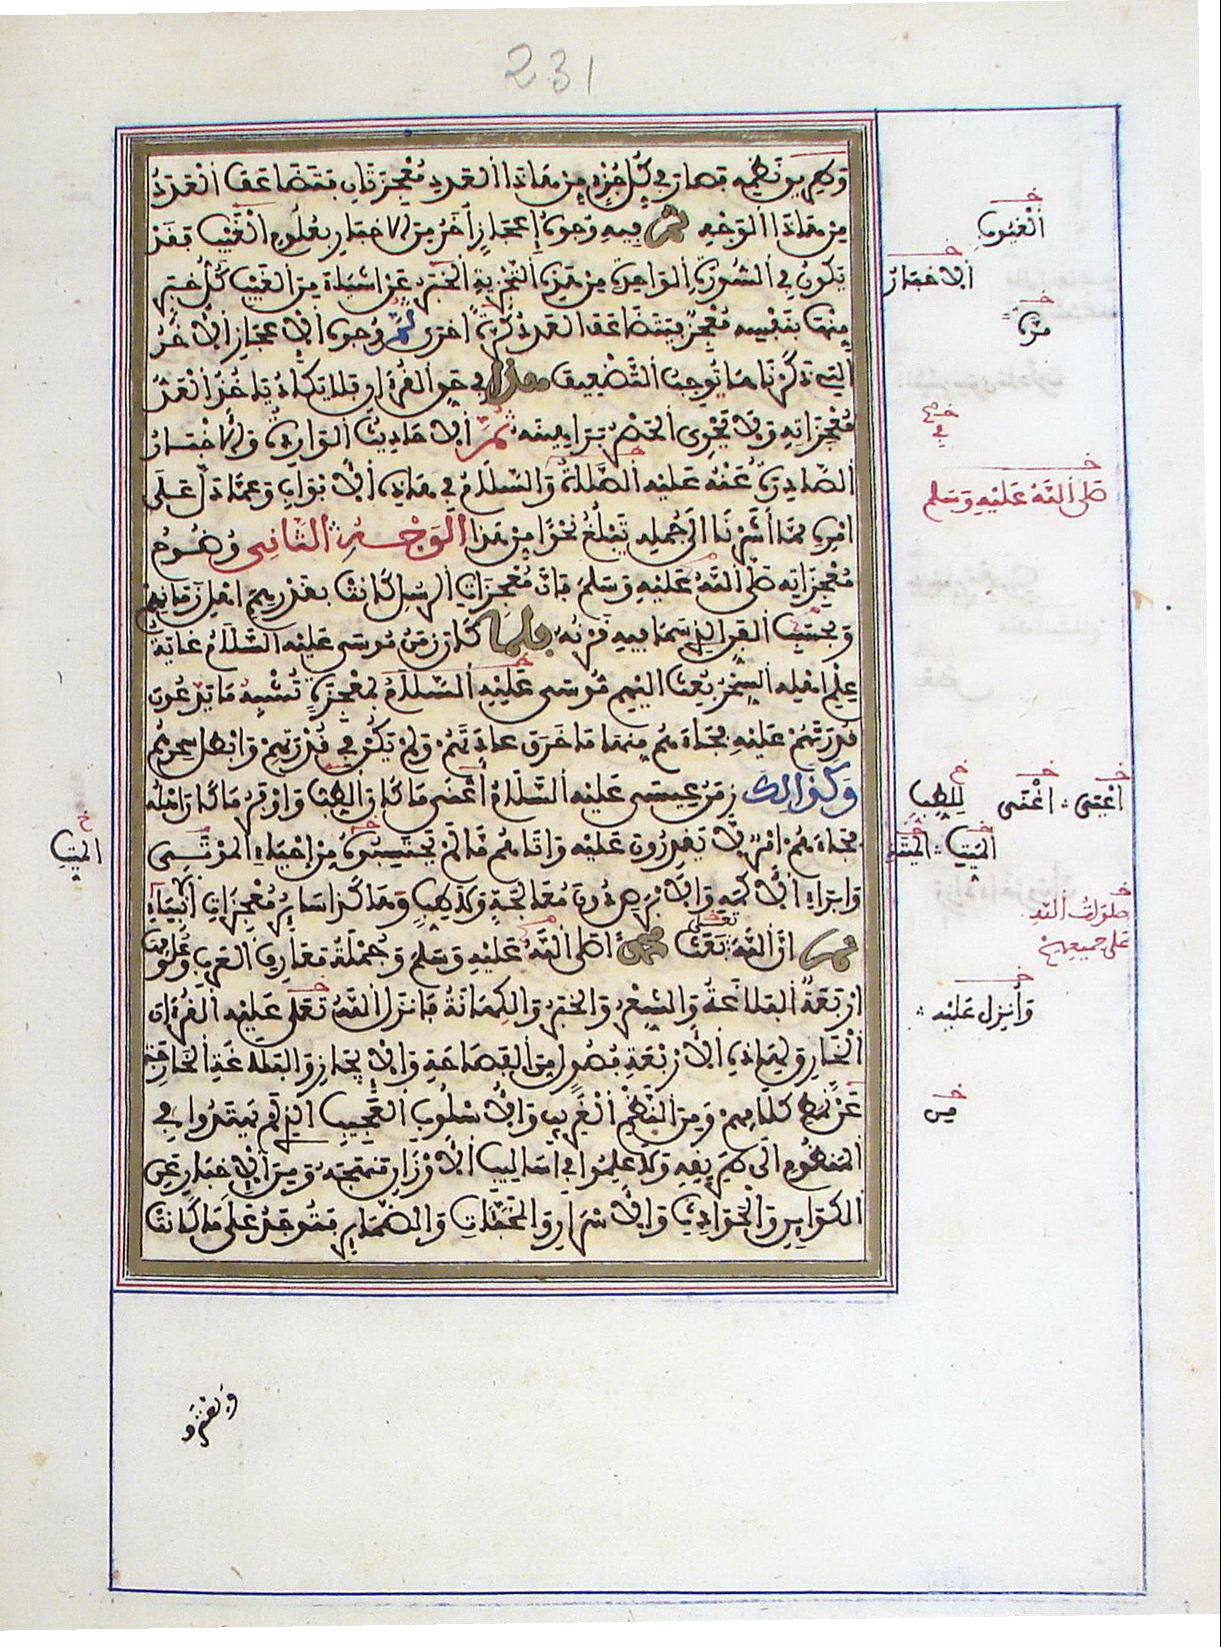 231
وطريق نظمه فصار في كل جزء من هاذا العدد معجزتان فتضاعف العدد
من هاذا الوجه ثم فيه وجوه إعجاز أخر من الاخبار بعلوم الغيب فقد
يكون في السورة الواحدة من هذه التجزية الخبر عن اشياء من الغيب كل خبر
منها بنفسه معجز فتضاعف العدد كرة اخرى ثم وجوه الاعجاز الاخر
التي ذكرناها توجب التضعيف هذا في حق القرءان فلا يكاد ياخذ العد
معجزاته ولا يحوى الحصر براهينه ثم الاحاديث الواردة والاخبار
الصادرة عنه عليه الصلاة والسلام في هاذه الابواب وعما دل على
امره مما أشرنا الى جمله تبلغ نحوا من هذا الوجه الثاني وضوح
معجزاته صلى الله عليه وسلم فان معجزات الرسل كانت بقدر همم اهل زمانهم
وبحسب الفن الذي سما فيه قرنه فلما كان زمن موسى عليه السلام غاية
علم اهله السحر بعث اليهم موسى عليه السلام بمعجزة تشبه ما يدعون
قدرتهم عليه فجاءهم منها ما خرق عادتهم ولم يكن في قدرتهم وابطل سحرهم
وكذالك زمن عيسى عليه السلام أغنى ما كان الطب واوفر ما كان اهله
فجاءهم امر لا يقدرون عليه واتاهم ما لم يحتسبوه من إحياء الموتى
وابراء الاكمه والابرص دون معالجة ولا طب وهاكذا ساير معجزات الانبياء
ثم ان الله تعلى بعث محمدا صلى الله عليه وسلم وجملة معارف العرب وعلومها
اربعة البلاغة والشعر والخبر والكهانة فانزل الله تعلى عليه القرءان
الخارق لهاذه الاربعة فصول من الفصاحة والايجاز والبلاغة الخارجة
عن نمط كلامهم ومن النظم الغريب والاسلوب العجيب الذي لم يهتدوا في
المنظوم الى طريقه ولا علموا في اساليب الاوزان منهجه ومن الاخبار عن
الكواين والحوادث والاسرار والمخبئات والضماير فتوجد على ما كانت
الغيوب
الاخبار
مرة
في
صلى الله عليه وسلم
اغنى اغنى للطب
الميت الميت
الميت
صلوات الله
على جميعهم
وأنزل عليه
من